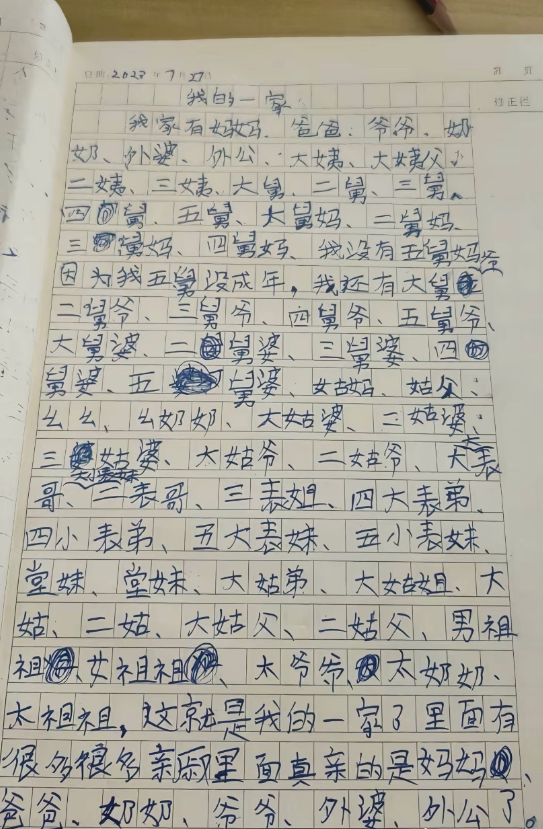 日期:2023年7月27日
我的一家
我家有妈妈、爸爸、爷爷、奶
奶、外婆、外公、大姨、大姨父、
二姨、三姨、大舅、二舅、三舅、
四舅、五舅、大舅妈、二舅妈、
三舅妈、四舅妈、我没有五舅妈
因为我五舅没成年，我还有大舅爷
二舅爷、三舅爷、四舅爷、五舅爷、
大舅婆、二舅婆、三舅婆、四
舅婆、五舅婆、姑妈、姑父、
幺幺、幺奶奶、大姑婆、二姑婆、
三姑婆、大姑爷、二姑爷、大表
哥、二表哥、三表姐、四大表弟、
四小表弟、五大表妹、五小表妹、
堂妹、堂妹、大姑弟、大姑姐、大
姑、二姑、大姑父、二姑父、男祖
祖、女祖祖、太爷爷、太奶奶、
太祖祖，这就是我的一家了里面有
很多很多亲戚里面真亲的是妈妈、
爸爸、奶奶、爷爷、外婆、外公了。